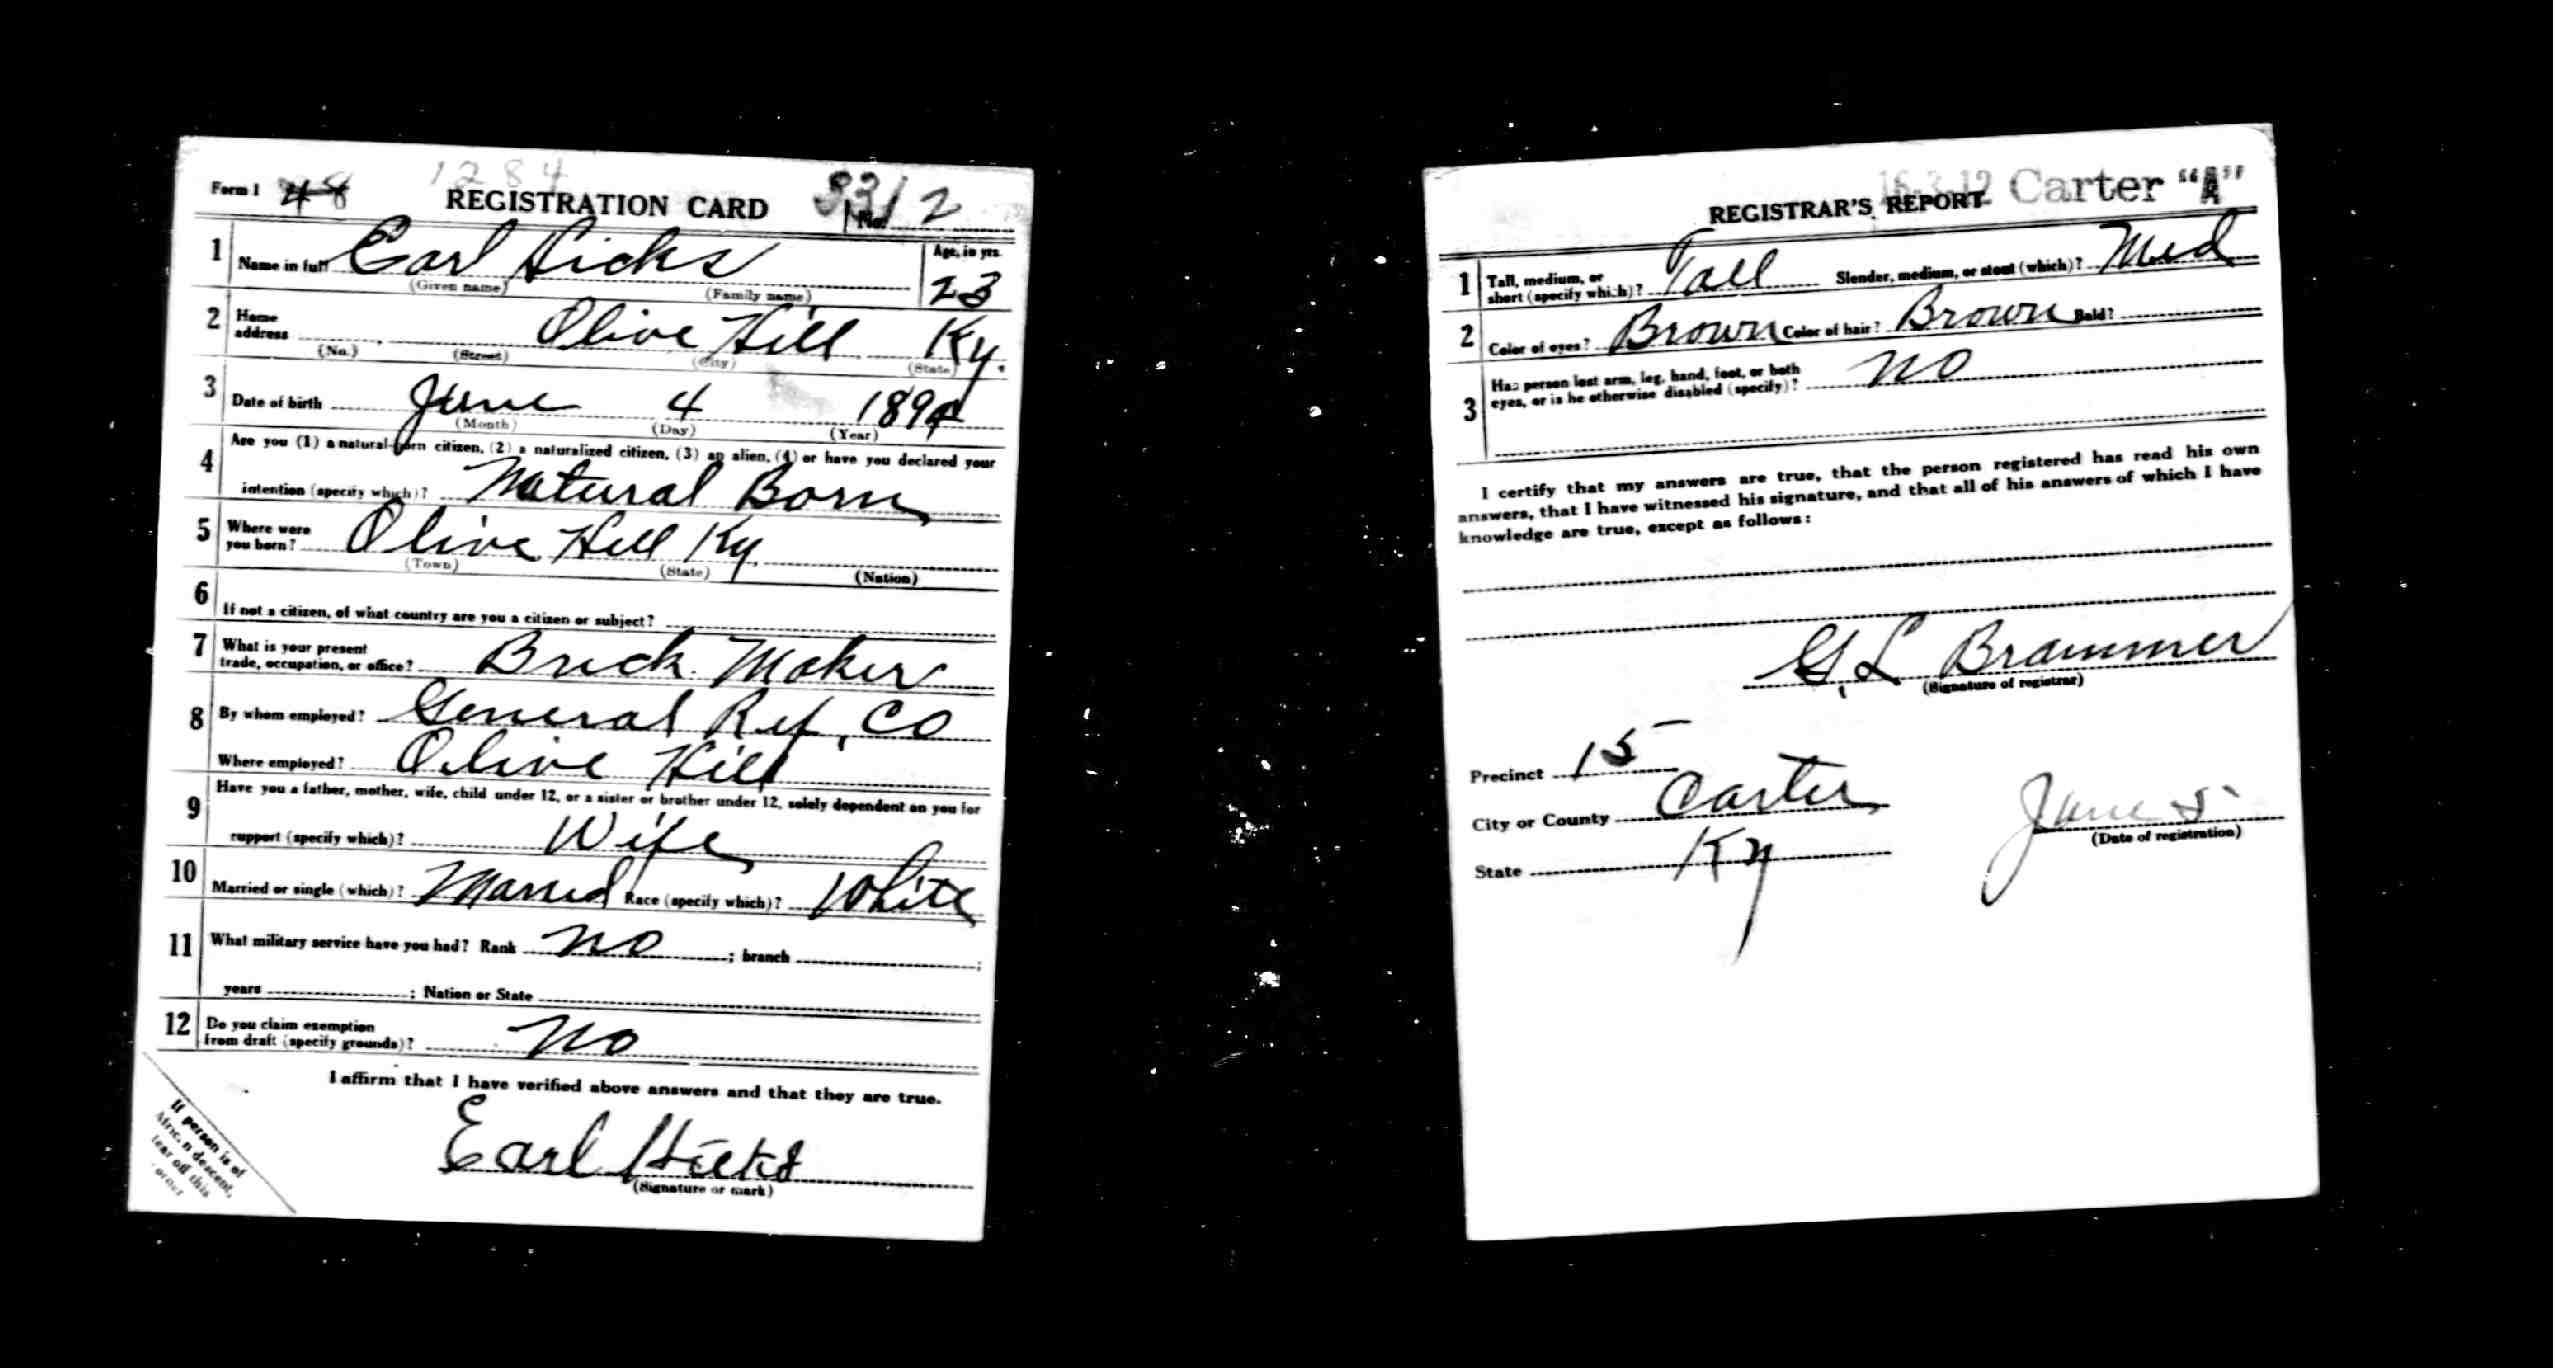 Form 1 48 1284 REGISTRATION CARD No. 12
1 Name in full Earl Hicks Age, in yrs. 23
(Given name) (Family name)
2 Home address Olive Hill Ky.
(No.) (Street) (City) (State)
3 Date of birth June 4 1894
(Month) (Day) (Year)
4 Are you (1) a natural-born citizen, (2) a naturalized citizen, (3) an alien, (4) or have you declared your
intention (specify which)? Natural Born
5 Where were you born? Olive Hill Ky
(Town) (State) (Nation)
6 If not a citizen, of what country are you a citizen or subject?
7 What is your present
trade, occupation, or office? Brick Maker
8 By whom employed? General Ref. Co
Where employed? Olive Hill
9 Have you a father, mother, wife, child under 12, or a sister or brother under 12, solely dependent on you for
support (specify which)? Wife
10 Married or single (which)? Married Race (specify which)? White
11 What military service have you had? Rank no ; branch ;
years ; Nation or State
12 Do you claim exemption
from draft (specify grounds)? no
I affirm that I have verified above answers and that they are true.
Earl Hicks
(Signature or mark)
If person is of
African descent,
tear off this
corner
16-3-12 Carter "A"
REGISTRAR'S REPORT
1 Tall, medium, or
short (specify which)? Tall Slender, medium, or stout (which)? Med
2 Color of eyes? Brown Color of hair? Brown Bald?
3 Has person lost arm, leg, hand, foot, or both
eyes, or is he otherwise disabled (specify)? no
I certify that my answers are true, that the person registered has read his own
answers, that I have witnessed his signature, and that all of his answers of which I have
knowledge are true, except as follows:
G. L Brammer
(Signature of registrar)
Precinct 15
City or County Carter
State Ky
June 5
(Date of registration)